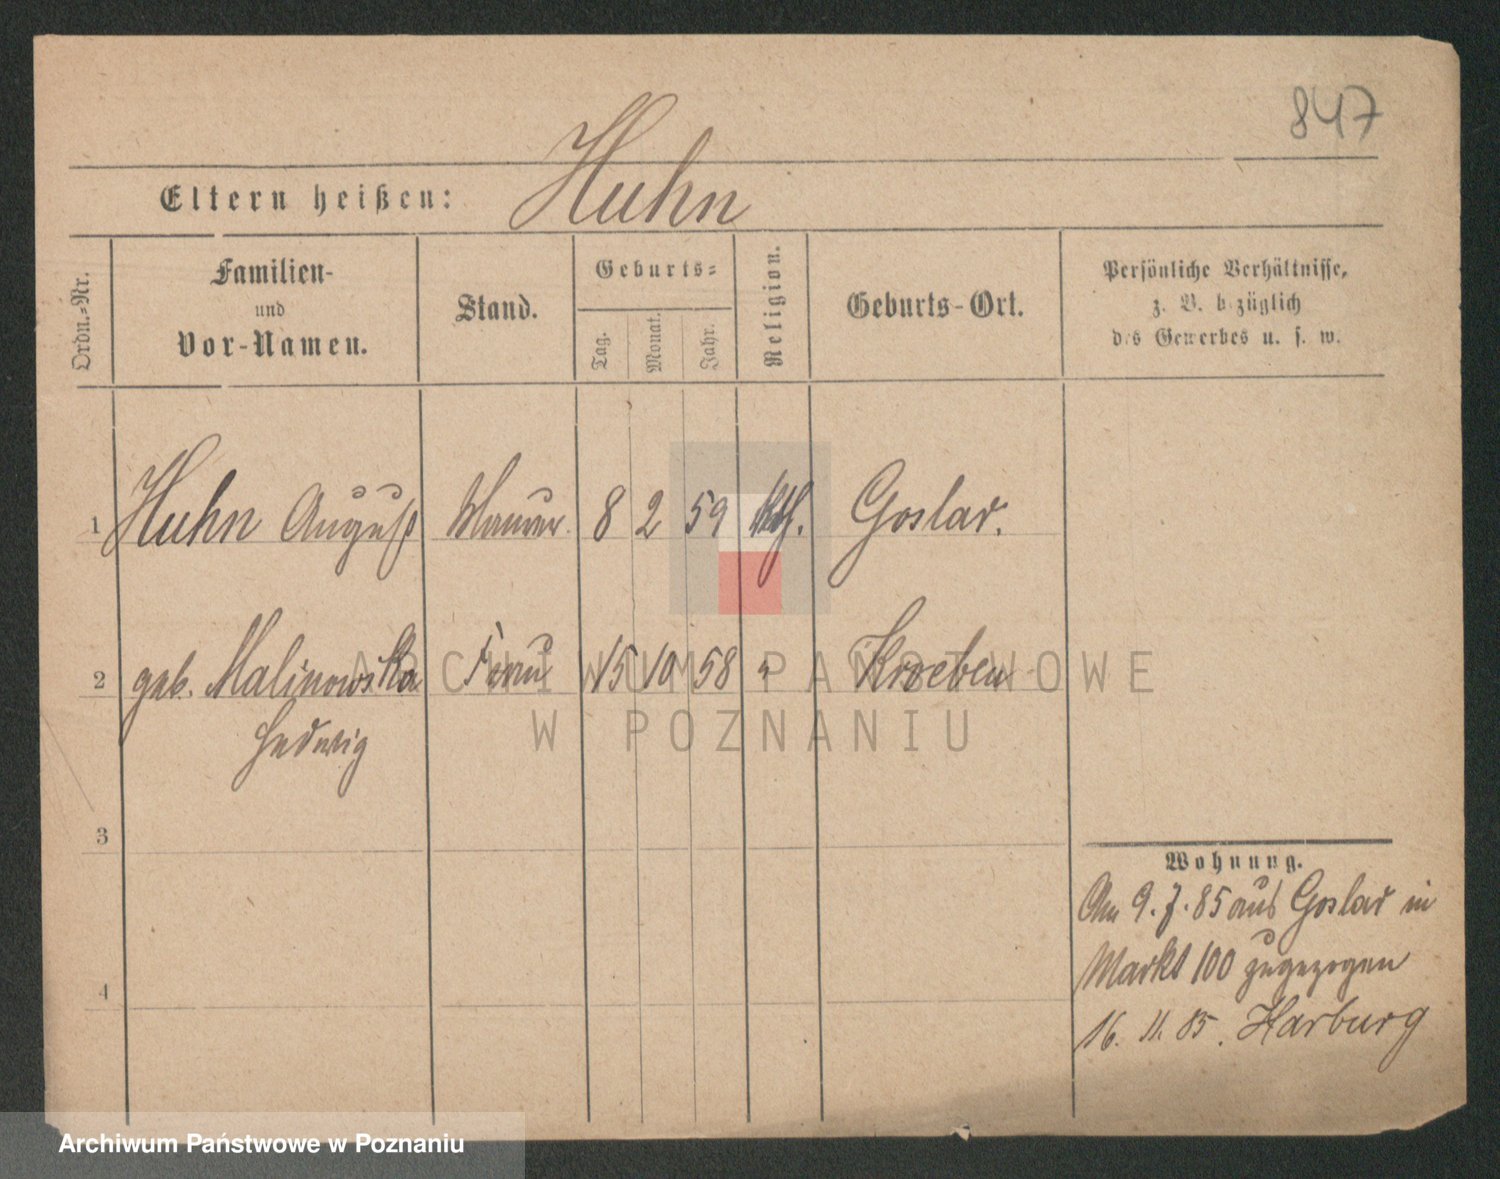 847
Eltern heißen: Huhn
Ordn.-Nr.
Familien-
und
Vor-Namen.
Stand.
Geburts-
Tag.
Monat.
Jahr.
Religion.
Geburts-Ort.
Persönliche Verhältnisse,
z. B. bezüglich
des Gewerbes u. s. w.
1 Huhn August Maurer 8 2 59 kth. Goslar.
2 geb. Malinowska Frau 15 10 58 " Kroeben
Hedwig
3
4
Wohnung.
Am 9. 7. 85 aus Goslar in
Markt 100 zugezogen
16. 11. 85. Harburg
ARCHIWUM PAŃSTWOWE
W POZNANIU
Archiwum Państwowe w Poznaniu